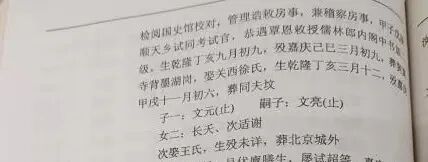 检阅国史馆校对，管理诰敕房事，兼稽察房事，甲子
顺天乡试同考试官，恭遇覃恩敕授儒林郎内阁中书
级，生乾隆丁亥九月初九，殁嘉庆己巳三月初九，葬
寺背墨湖岗，娶关西徐氏，生乾隆丁亥三月十二，殁嘉庆
甲戌十一月初六，葬同夫坟
子一：文元(止) 嗣子：文亮(止)
女二：长夭、次适谢
次娶王氏，生殁未详，葬北京城外